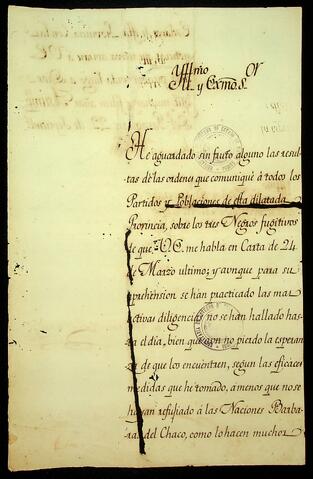 Yllmo y Exmo. Sor
He aguardado sin fruto alguno las resul
tas de las ordenes que comuniquè à todos los
Partidos y Poblaciones de esta dilatada
Provincia, sobre los tres Negros fugitivos
de que V.E. me habla en Carta de 24
de Marzo ultimo; y aunque para su
aprehension se hán practicado las mas
activas diligencias no se hán hallado has
ta el dia, bien que aun no pierdo la esperan
za de que los encuentren, segun las eficaces
medidas que he tomado, à menos que no se
hayan refugiado á las Naciones Barba
ras del Chaco, como lo hacen muchos